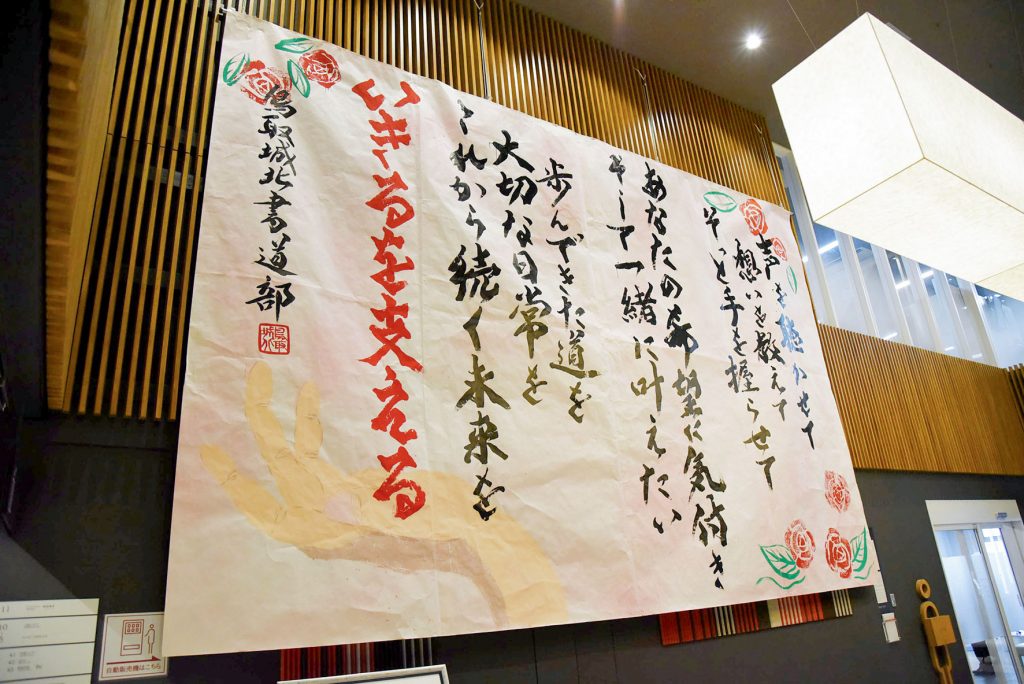 声を聴かせて
想いを教えて
そっと手を握らせて
あなたの希望に気付き
そして一緒に叶えたい
歩んできた道を
大切な日常を
これから続く未来を
いきるを支える
鳥取城北書道部
自動販売機はこちら